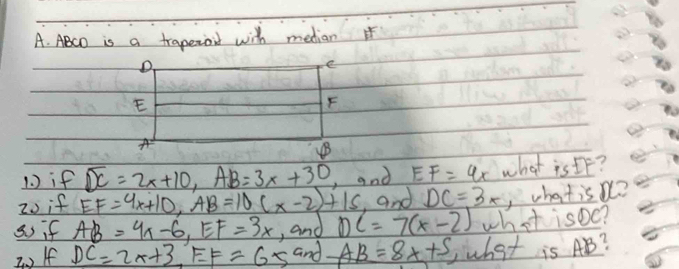 A. ABCD is a trapezoid with median EF
D C
E F
A B
1.) if DC = 2x+10, AB=3x+30, and EF=9x what is EF?
2.) if EF=4x+10, AB=10(x-2)+15, and DC=3x, what is DC?
3.) if AB=9x-6, EF=3x, and DC=7(x-2) what is DC?
4.) If DC=2x+3, EF=6x and AB=8x+5, what is AB?